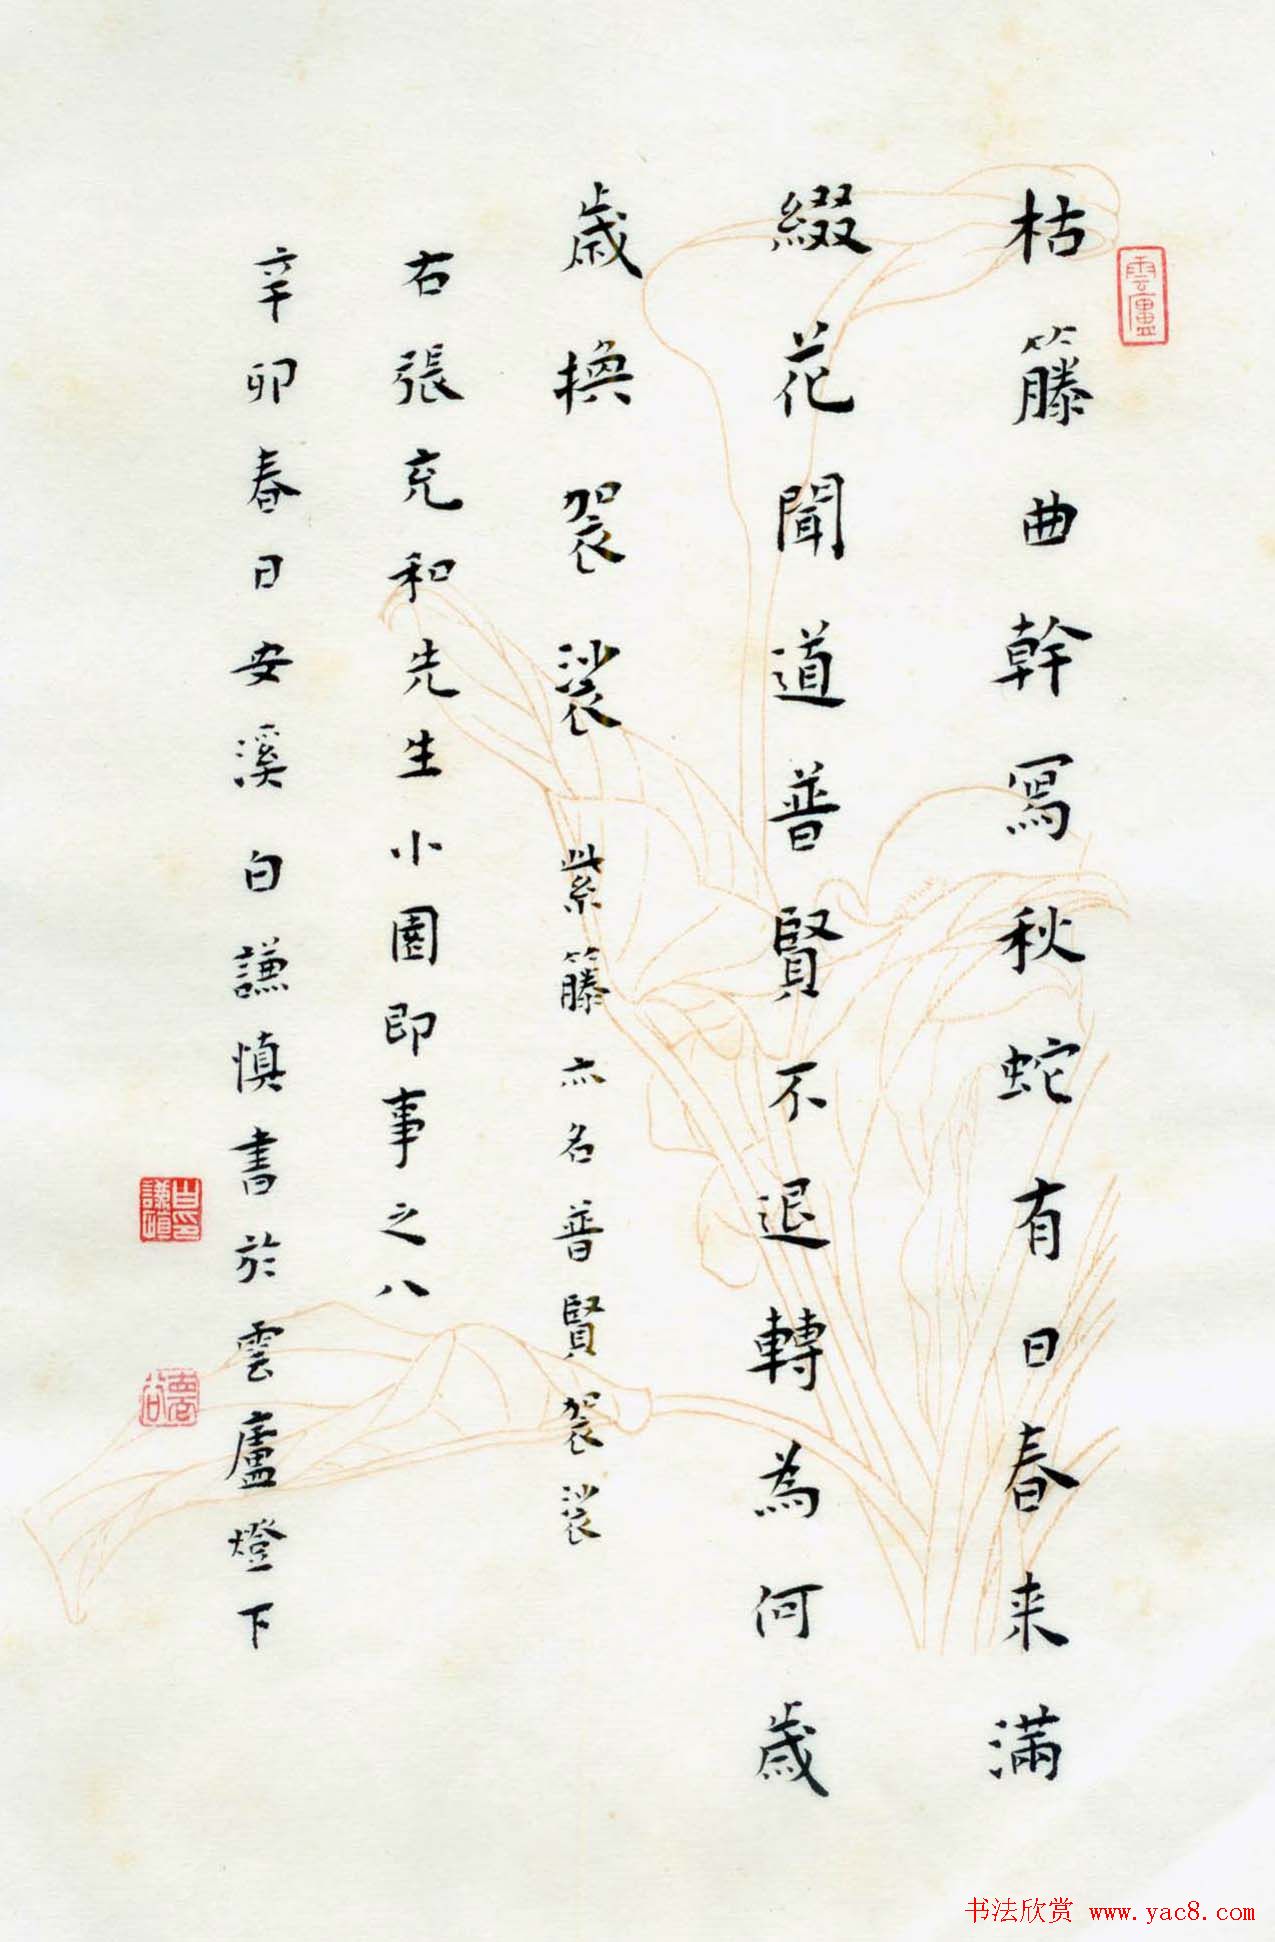 枯籐曲幹寫秋蛇有日春来滿
綴花聞道普賢不退轉為何歲
歲換袈裟 紫籐亦名普賢袈裟
右張充和先生小園即事之八
辛卯春日安溪白謙慎書於雲廬燈下
雲廬
白謙慎印
书法欣赏 www.yac8.com